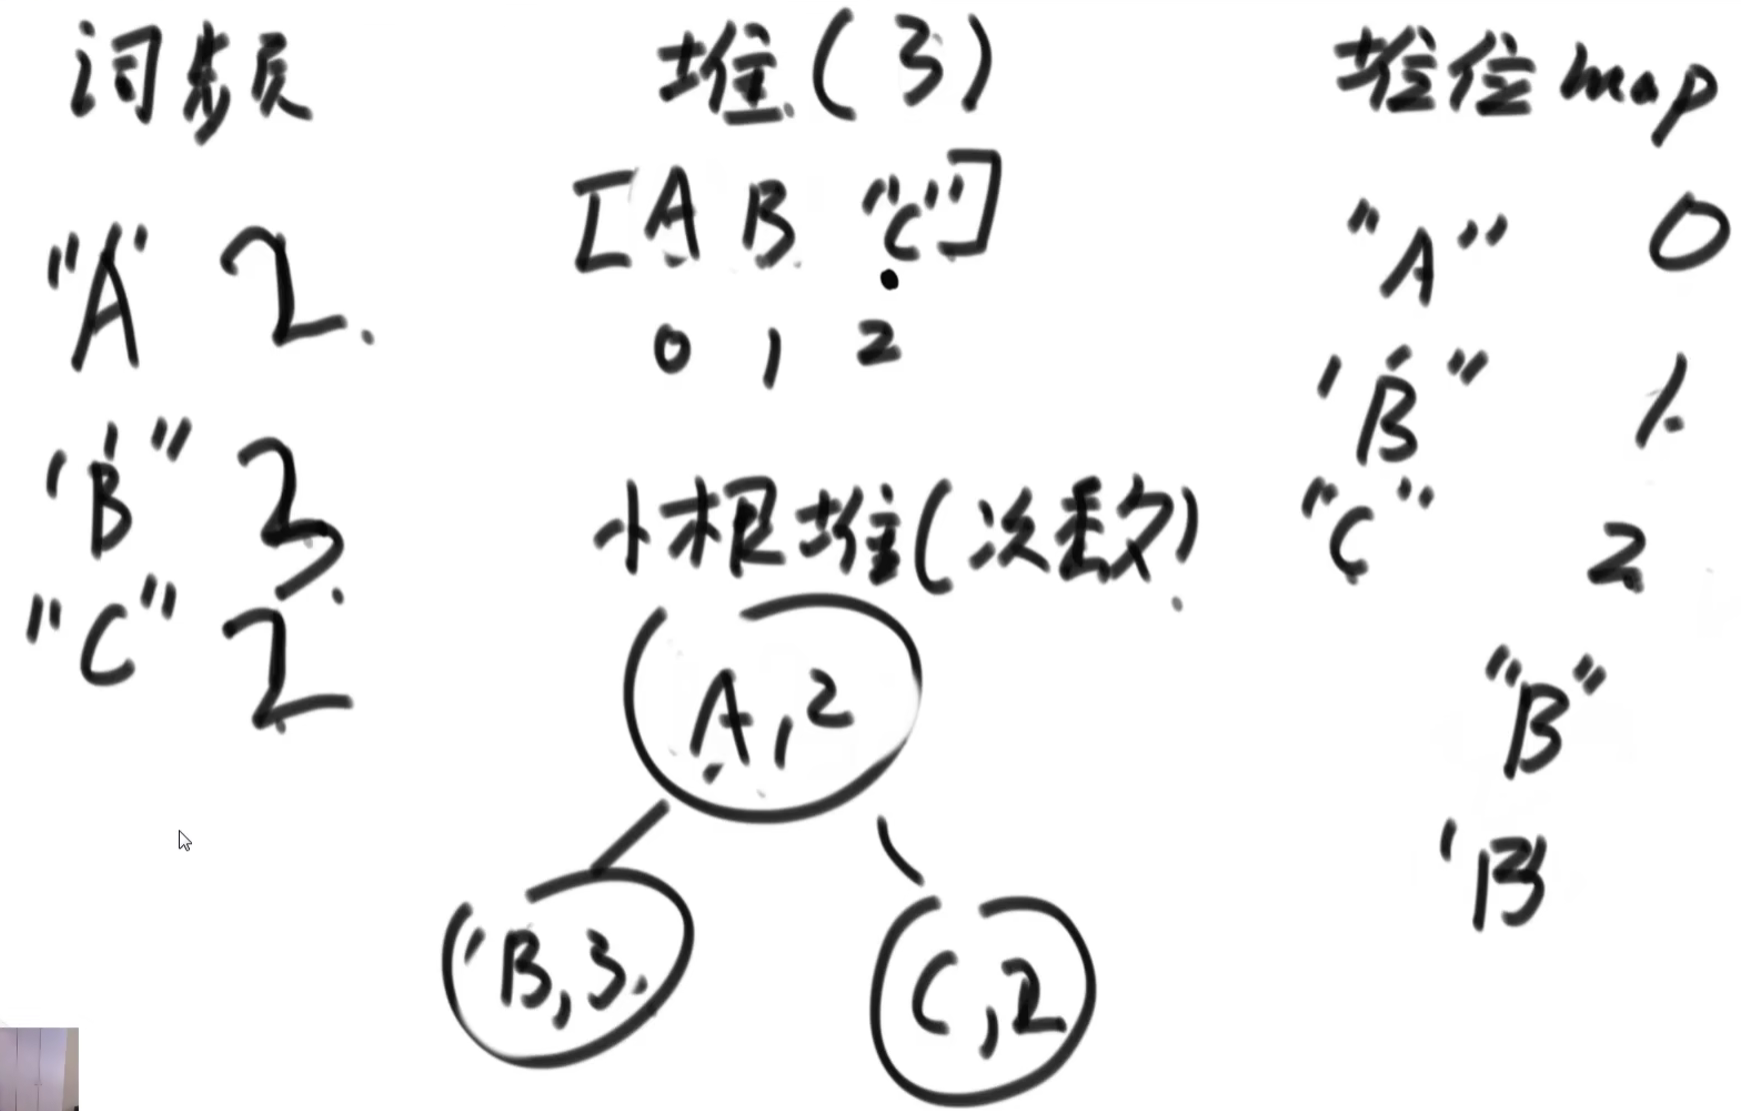 词频
"A" 2
"B" 3
"C" 2
堆(3)
[A B "C"]
0 1 2
小根堆(次数)
A,2
'B,3
C,2
堆位map
"A" 0
'B" 1
"C" 2
"B"
'B